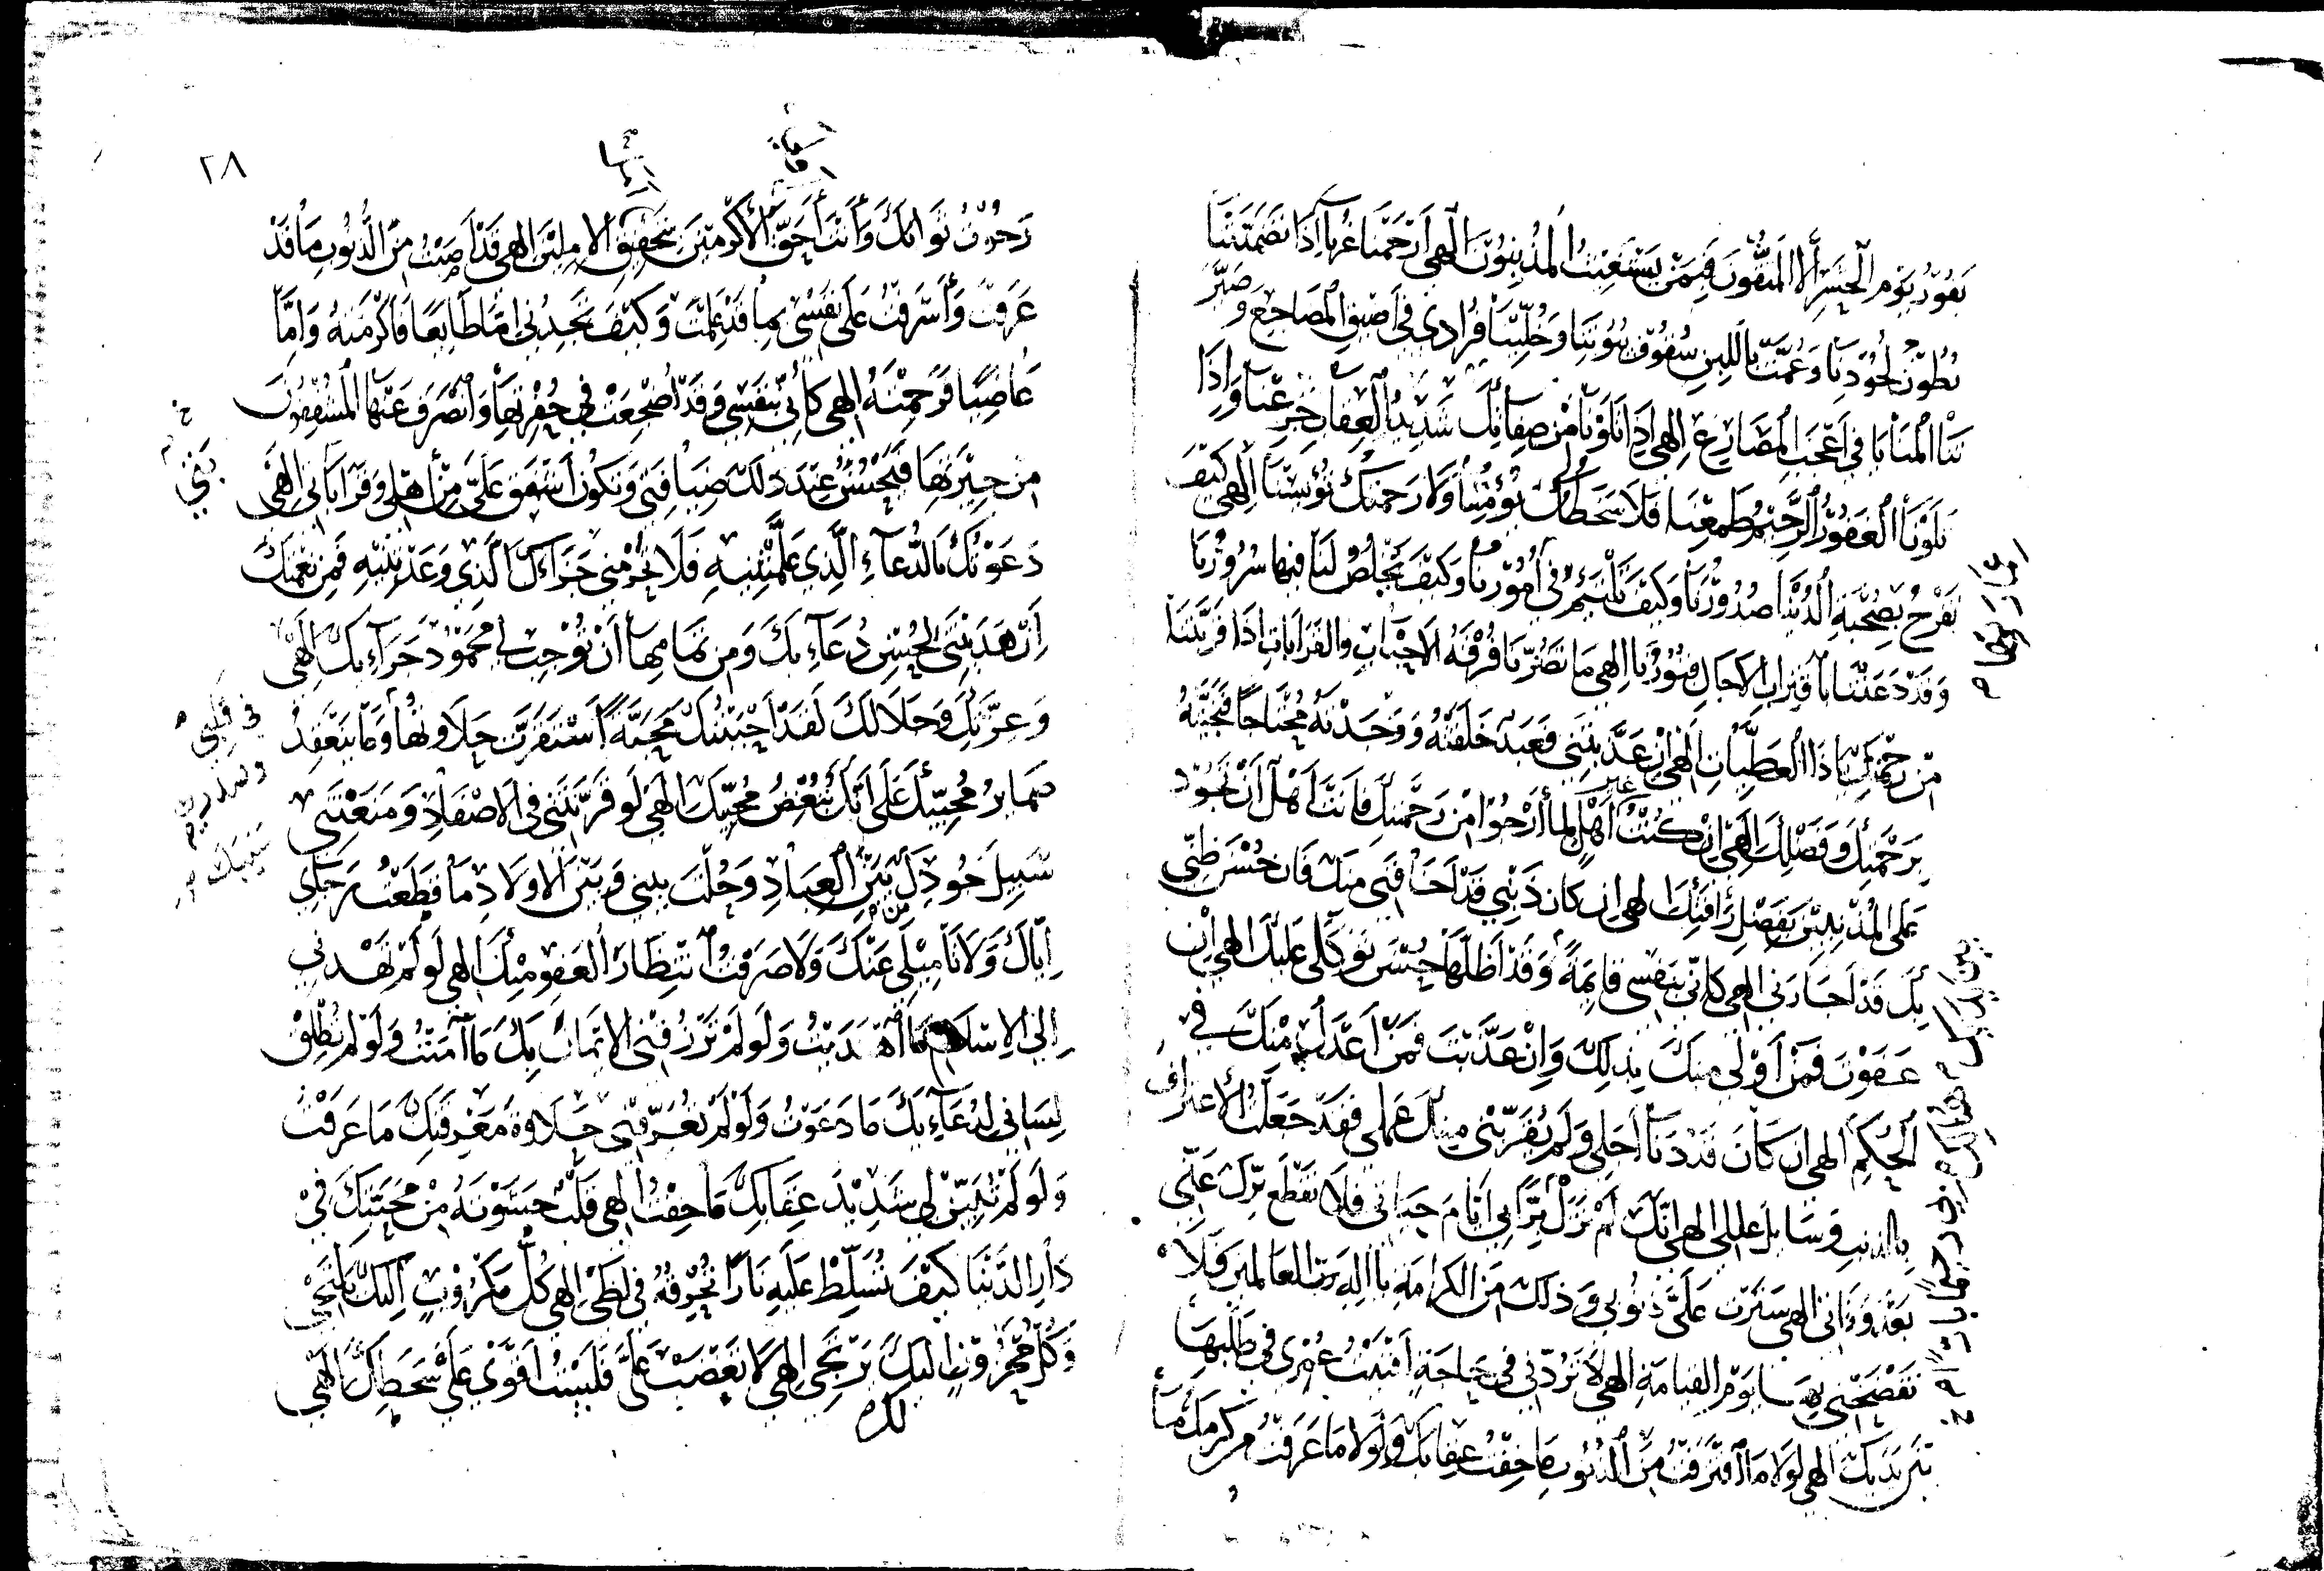 يَفُوزُ يَوْمَ الْحَشْرِ أَلَا الْمُتَّقُونَ فَبِمَنْ يَسْتَغِيثُ الْمُذْنِبُونَ الهي ارْحَمْنَا غُرَبَآءَ إِذَا تَضَمَّنَتْنَا
بُطُونُ لُحُودِنَا وَغُمَّتْ بِاللَّبِنِ سُقُوفُ بُيُوتِنَا وَخُلِّينَا فُرَادَى فِي أَضْيَقِ الْمَضَاجِعِ وَصَيَّرَ
تْنَا الْمَنَايَا فِي أَعْجَبِ الْمَصَارِعِ الهي إِذَا تَلَوْنَا مِنْ صِفَاتِكَ شَدِيدُ الْعِقَابِ جَزِعْنَا وَإِذَا
تَلَوْنَا الْغَفُورُ الرَّحِيمُ طَمِعْنَا فَلَا سَخَطُكَ يُؤْمِنُنَا وَلَا رَحْمَتُكَ تُؤْيِسُنَا الهي كَيْفَ
تَفْرَحُ بِصُحْبَةِ الدُّنْيَا صُدُورُنَا وَكَيْفَ تَلْتَئِمُ فِي أُمُورُنَا وَكَيْفَ يَخْلُصُ لَنَا فِيهَا سُرُورُنَا
وَقَدْ دَعَتْنَا بِاقْتِرَابِ الْآجَالِ قُبُورُنَا الهي مَا تَضُرُّنَا فُرْقَةُ الْأَحْبَابِ وَالْقَرَابَاتِ إِذَا قَرَّبْتَنَا
مِنْ رَحْمَتِكَ يَاذَا الْعَطِيَّاتِ الهي إِنْ عَذَّبْتَنِي فَعَبْدٌ خَلَقْتَهُ وَوَجَدْتَهُ مُحْتَاجًا فَنَجَّيْتَهُ
بِرَحْمَتِكَ وَفَضْلِكَ الهي إِنْ كُنْتُ غير أَهْلٍ لِمَا أَرْجُوا مِنْ رَحْمَتِكَ فَأَنْتَ أَهْلٌ أَنْ تَجُودَ
عَلَى الْمُذْنِبِينَ بِفَضْلِ رَأْفَتِكَ الهي إِنْ كَانَ ذَنْبِي قَدْ أَخَافَنِي مِنْكَ فَإِنَّ حُسْنَ ظَنِّي
بِكَ قَدْ أَجَارَنِي الهي كَأَنِّي بِنَفْسِي قَائِمَةً وَقَدْ أَظَلَّهَا حُسْنُ تَوَكُّلِي عَلَيْكَ الهي إِنْ
عَفَوْتَ فَمَنْ أَوْلَى مِنْكَ بِذَلِكَ وَإِنْ عَذَّبْتَ فَمَنْ أَعْدَلُ مِنْكَ فِي
الْحُكْمِ الهي إِنْ كَانَ قَدْ دَنَا أَجَلِي وَلَمْ يُقَرِّبْنِي مِنْكَ عَمَلِي فَقَدْ جَعَلْتُ الْإِعْتِرَافَ
بِالذَّنْبِ وَسَائِلَ عِلَلِي الهي إِنَّكَ لَمْ تَزَلْ بَرًّا بِي أَيَّامَ حَيَاتِي فَلَا تَقْطَعْ بِرَّكَ عَنِّي
بَعْدَ وَفَاتِي الهي سَتَرْتَ عَلَيَّ ذُنُوبِي وَذَلِكَ مِنَ الْكَرَامَةِ يَا إِلَهَ رَبَّ الْعَالَمِينَ فَلَا
تَفْضَحْنِي بِهَا يَوْمَ الْقِيَامَةِ الهي لَا تَرُدَّنِي فِي حَاجَةٍ أَفْنَيْتُ عُمْرِي فِي طَلَبِهَا
بَيْنَ يَدَيْكَ الهي لَوْلَا مَا اقْتَرَفْتُ مِنَ الذُّنُوبِ مَا خِفْتُ عِقَابَكَ وَلَوْلَا مَا عَرَفْتُ مِنْ كَرَمِكَ مَا
٢٨
رَجَوْتُ ثَوَابَكَ وَأَنْتَ أَحَقُّ الْأَكْرَمِينَ بِتَحْقِيقِ الهي قَدْ أَصَبْتُ مِنَ الذُّنُوبِ مَا قَدْ
عَرَفْتَ وَأَسْرَفْتُ عَلَى نَفْسِي بِمَا قَدْ عَلِمْتَ وَكَيْفَ تَجِدُنِي إِمَّا طَائِعًا فَأَكْرَمْتَهُ وَإِمَّا
عَاصِيًا فَرَحِمْتَهُ الهي كَأَنِّي بِنَفْسِي وَقَدْ أُضْجِعَتْ فِي حُفْرَتِهَا وَانْصَرَفَ عَنْهَا الْمُشْفِقُونَ
مِنْ جِيرَتِهَا فَتُحْسِنُ عِنْدَ ذَلِكَ ضِيَافَتِي وَتَكُونُ أَشْفَقَ عَلَيَّ مِنْ أَهْلِي وَقَرَابَاتِي الهي
دَعَوْتُكَ بِالدُّعَآءِ الَّذِي عَلَّمْتَنِيهِ فَلَا تَحْرِمْنِي جَزَاءَكَ الَّذِي وَعَدْتَنِيهِ فَمِنْ نِعْمَتِكَ
أَنْ هَدَيْتَنِي لِحُسْنِ دُعَآءِكَ وَمِنْ تَمَامِهَا أَنْ تُوجِبَ لِي مَحْمُودَ جَزَآءِكَ الهي
وَعِزَّتِكَ وَجَلَالِكَ لَقَدْ أَحْبَبْتُكَ مَحَبَّةً اسْتَقَرَّتْ حَلَاوَتُهَا وَمَا يَنْعَقِدُ
ضَمَايِرُ مُحِبِّيكَ عَلَى أَنَّكَ تُبْغِضُ مُحِبِّيكَ الهي لَوْ قَرَنْتَنِي فِي الْأَصْفَادِ وَمَنَعْتَنِي
سَبِيلَ جُودِكَ بَيْنَ الْعِبَادِ وَحُلْتَ بَيْنِي وَبَيْنَ الْأَوْلَادِ مَا قَطَعْتُ رَجَائِي
إِيَّاكَ وَلَا مَيْلِي عَنْكَ وَلَا صَرَفْتُ انْتِظَارَ الْعَفْوِ مِنْكَ الهي لَوْ لَمْ تَهْدِنِي
إِلَى الْإِسْلَامِ مَا اهْتَدَيْتُ وَلَوْ لَمْ تَرْزُقْنِي الْإِيمَانَ بِكَ مَا آمَنْتُ وَلَوْ لَمْ تُطْلِقْ
لِسَانِي لِدُعَآءِكَ مَا دَعَوْتُ وَلَوْ لَمْ تُعَرِّفْنِي حَلَاوَةَ مَعْرِفَتِكَ مَا عَرَفْتُ
وَلَوْ لَمْ تُبَيِّنْ لِي شَدِيدَ عِقَابِكَ مَا خِفْتُ الهي قَلْبٌ حَشَوْتَهُ مِنْ مَحَبَّتِكَ فِي
دَارِ الدُّنْيَا كَيْفَ تُسَلِّطُ عَلَيْهِ نَارًا تُحْرِقُهُ فِي لَظَى الهي كُلُّ مَكْرُوبٍ إِلَيْكَ يَلْتَجِي
وَكُلُّ مَحْزُونٍ إِلَيْكَ يَرْتَجِي الهي لَا تَغْضَبْ عَلَيَّ فَلَسْتُ أَقْوَى عَلَى سَخَطِكَ الهي
في قلبي